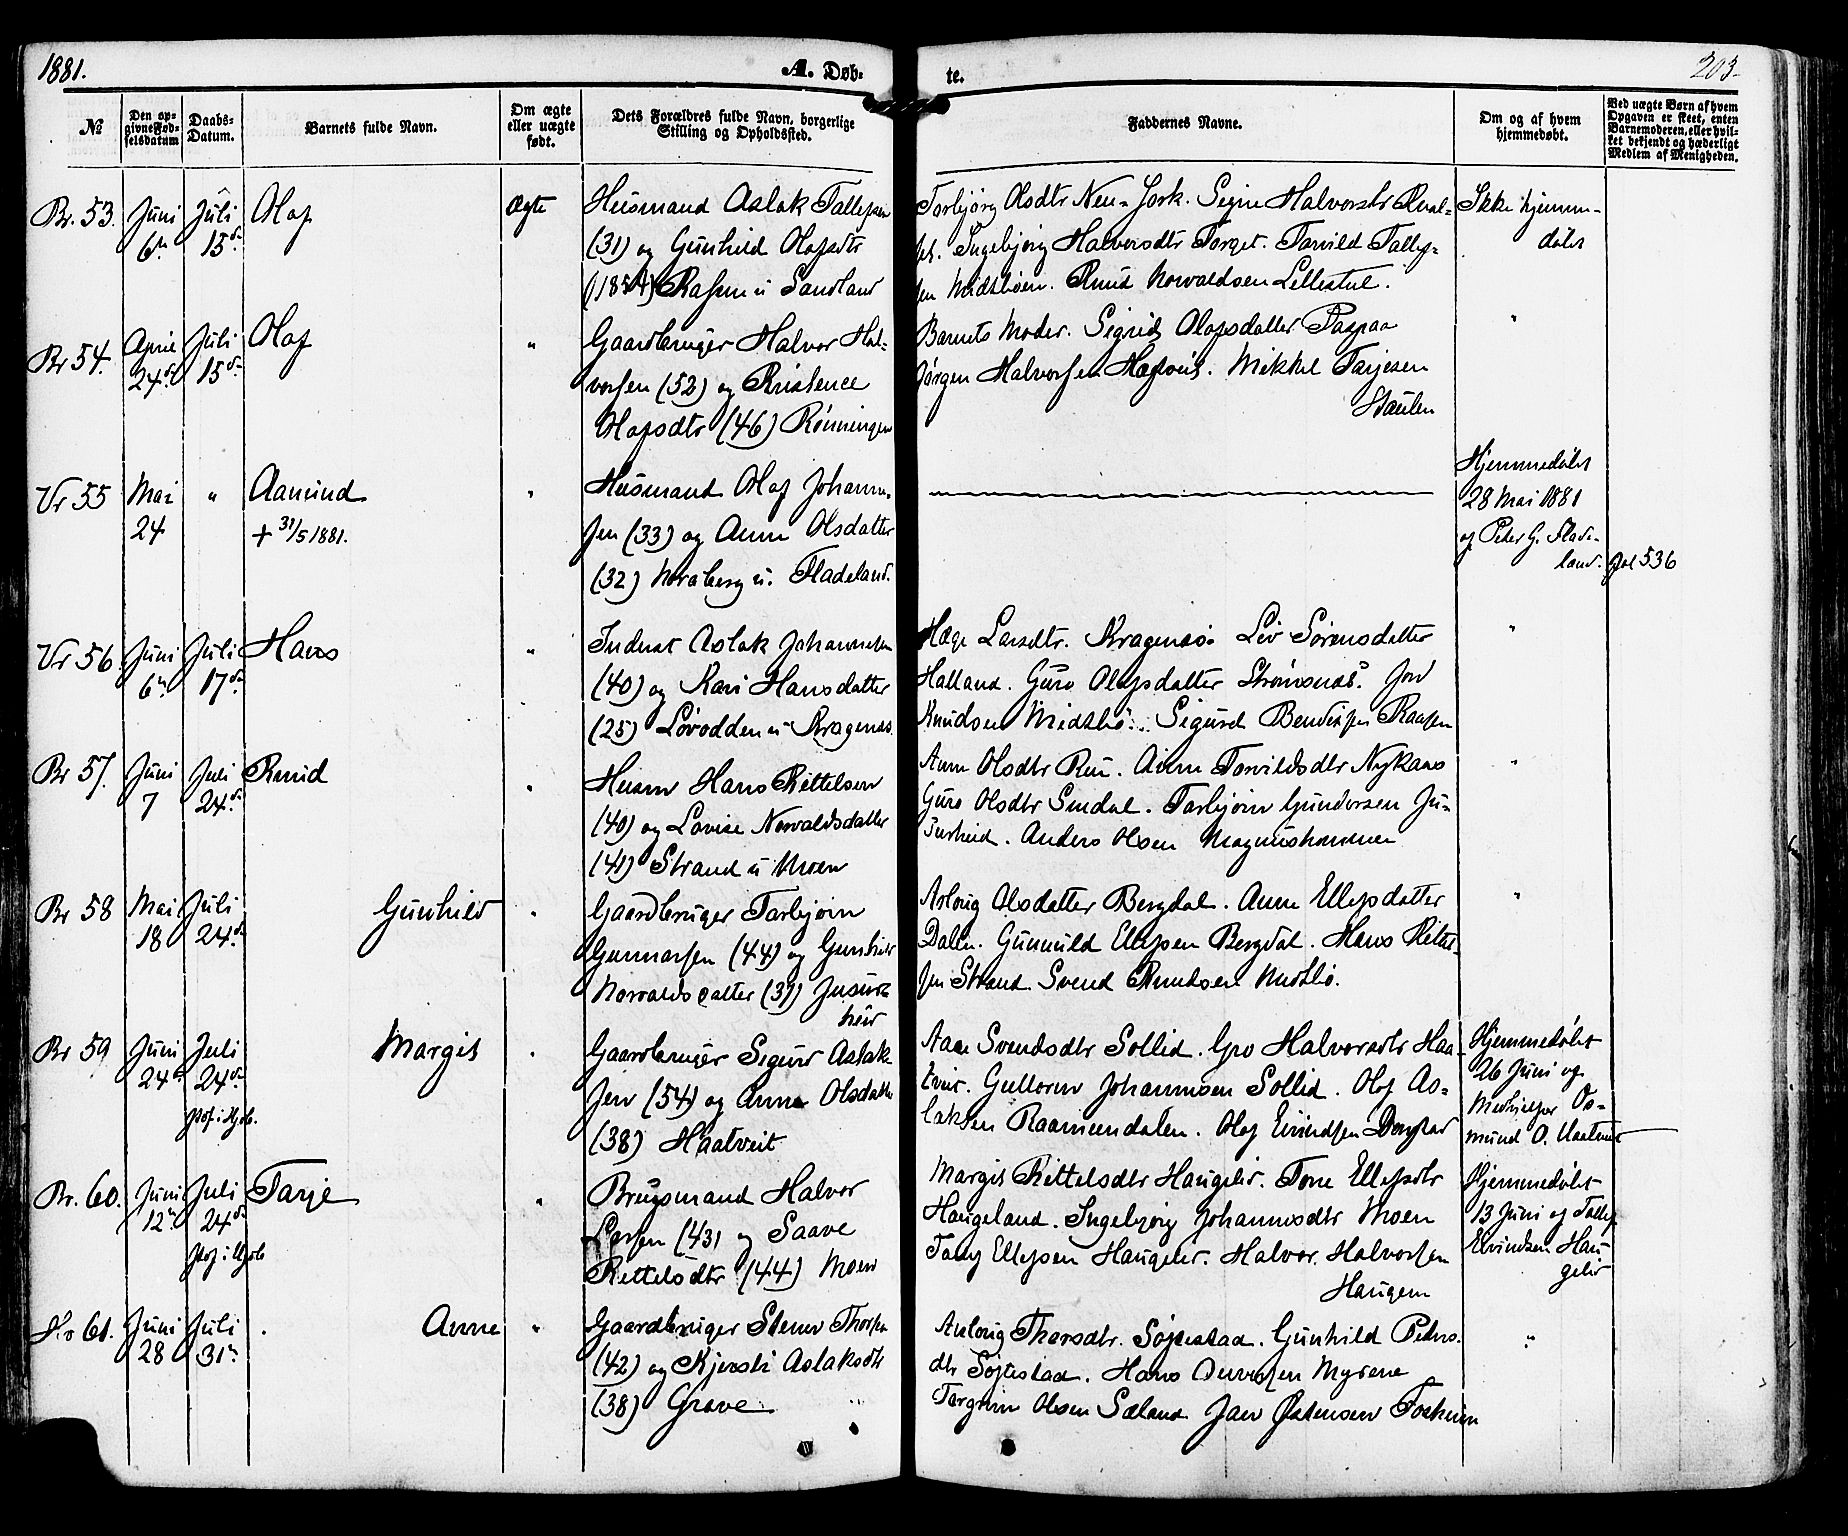 1881.
A. Døb-
te.
203.
№
Den op-
givne Fød-
selsdatum
Daabs-
Datum.
Barnets fulde Navn.
Om ægte
eller uægte
født.
Dets Forældres fulde Navn, borgerlige
Stilling og Opholdssted.
Faddernes Navne.
Om og af hvem
hjemmedøbt.
Ved uægte Børn af hvem
Opgaven er skeet, enten
Barnemoderen, eller hvil-
ket bekjendt og hæderligt
Medlem af Menigheden.
Br. 53.
Juni
6te
Juli
15de
Olaf
Ægte
Husmand Aslak Tallefsen
(31) og Gunhild Olafsdtr
(1854) u Sandland
Torbjørg Olsdtr New-York. Signe Halvorsdtr
Ingebjørg Halvorsdtr Torget. Tarvild Tallef-
sen Midtbøen. Knud Norvaldsen Lillestul.
Ikke hjemme-
døbt
Br 54.
April
24de
Juli
15de
Olaf
"
Gaardbruger Halvor Hal-
vorsen (52) og Kristence
Olafsdtr (46) Rønningen
Barnets Moder. Sigrid Olafsdatter Paapaa
Jørgen Halvorsen. Mikkel Tarjesen
Staulen
"
Vr 55
Mai
24
"
Aamund
+ 31/5 1881.
"
Husmand Olaf Johanne-
sen (33) og Anne Olsdatter
(32) Noraberg u. Fladeland.
Hjemmedøbt
28 Mai 1881
af Peter G. Flade-
land.
Pol 536
Vr 56
Juni
6te
Juli
17de
Hans
"
Inderst Aslak Johannesen
(40) og Kari Hansdatter
(25) Løvodden u Kragenæs.
Hæge Larsdtr. Kragenæs. Liv Sørensdatter
Halland. Guro Olafsdatter Strømsnæs. Jon
Knudsen Midtbø. Sigurd Bendiksen
"
Br 57.
Juni
7
Juli
24de
Knud
"
Husm Hans Kittelsen
(40) og Lovise Norvaldsdatter
(41) Strand u Moen
Anne Olsdtr. Anne Torvildsdtr Nykaas
Guro Olsdtr Smdal. Tarbjørn Gundersen Ju-
surheid. Anders Olsen
"
Br 58
Mai
18
Juli
24de
Gunhild
"
Gaardbruger Tarbjørn
Gunnarsen (44) og Gunhild
Norvaldsdatter (37) Jusur-
heid
Aslaug Olsdatter Bergdal. Anne Ellefsdatter
Dalen. Gunnuld Ellefsen Bergdal. Hans Kittel-
sen Strand. Svend Knudsen Midtbø.
"
Br 59
Juni
24de
Juli
24de
Margit
"
Gaardbruger Sigurd Aslak-
sen (54) og Anne Olsdatter
(38) Haatveit
Aase Svendsdtr Sollid. Gro Halvorsdtr Haa-
tveit. Gulleren Johannesen Sollid. Olaf As-
laksen Raamundalen. Olaf Eivindsen
Hjemmedøbt
26 Juni af
Medhjelper Os-
mund O. Haatveit
Br. 60.
Juni
12te
Juli
24de
Tarje
"
Brugsmand Halvor
Larsen (43) og Saave
Kittelsdtr (44) Moen
Margit Kittelsdtr Haugelid. Tone Ellefsdtr
Haugeland. Ingebjørg Johannesdtr Moen
Ellefsen Haugelid. Halvor Halvorsen
Haugen
Hjemmedøbt
13 Juni af Tallef
Eivindsen Hau-
gelid
61.
Juni
28
Juli
31te
Anne
"
Gaardbruger Stener Thorsen
(42) og Kjersti Aslaksdtr
(38) Grave
Aslaug Thorsdtr. Søftestad. Gunhild Peders-
dtr Søftestad. Hans Myrene
Torgrim Olsen Sæland. Jan Østensen
"